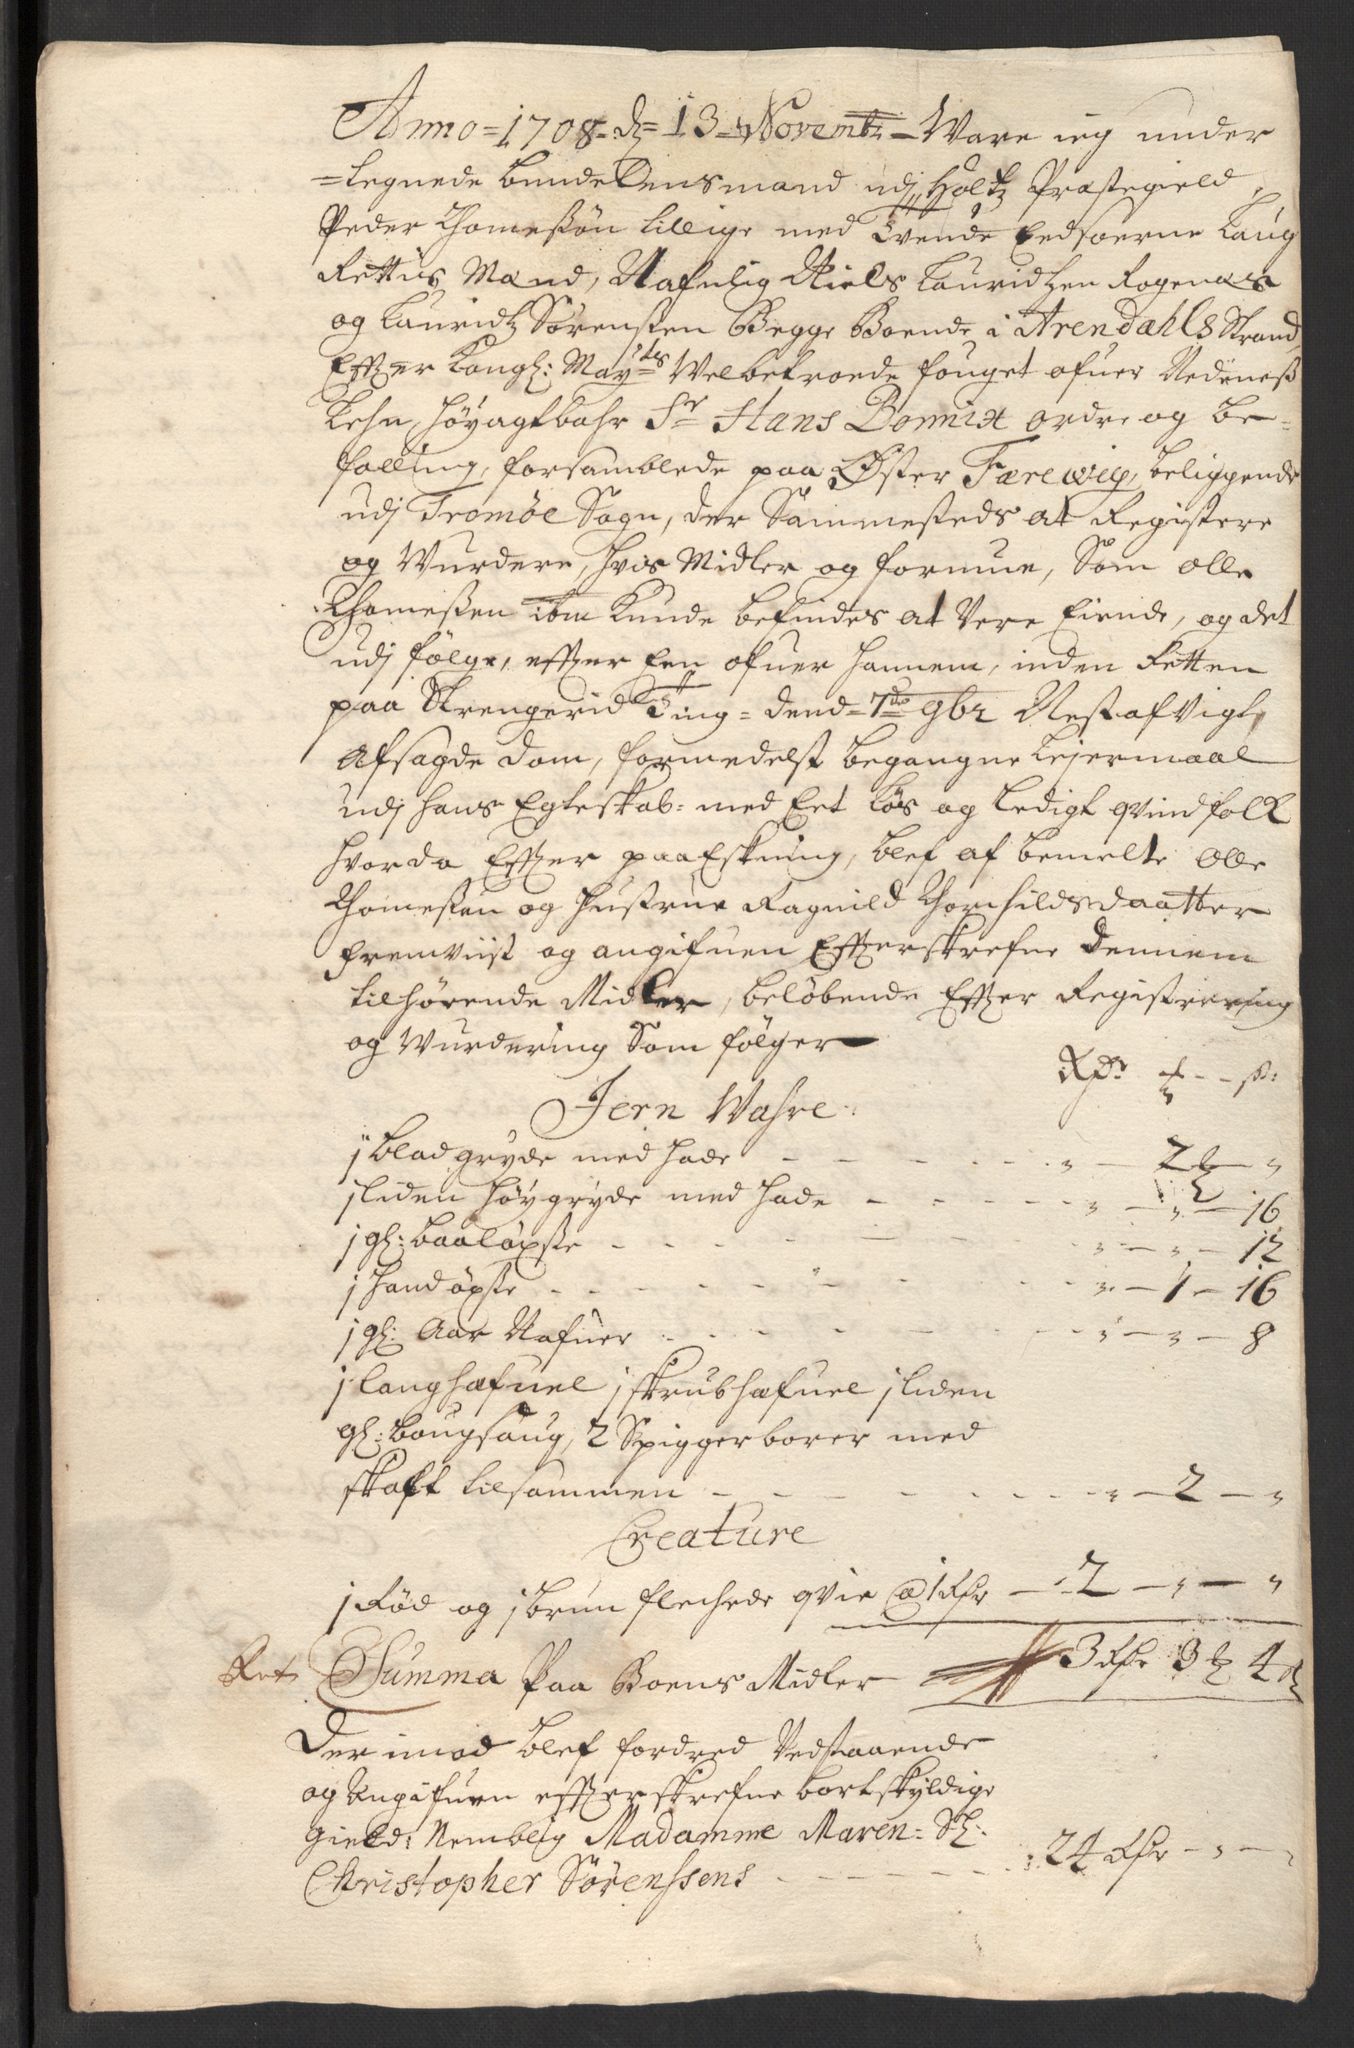 Anno = 1708 = d: = 13 = Novemb: = Ware ieg under
= tegnede bundeLensmand udj Holtz Præstegield,
Peder Thomessøn tillige med Tvende Eedsoerne Laug
Rettis Mænd, Nafnlig Niels Lauridtzen Rogenæs
og Lauridtz Sørensen Begge Boende i Arendahls Strand
Efter Kongl: Mayts Welbetroede fouget ofuer Nedeneß
Lehn, høyagtbahr Sr Hans ordre og be=
falling, forsamblede paa Øster Færewig, beliggende
udj Tromøe Sogn, der Sammesteds at Registere
og Wurdere, hvis Midler og formue, Som olle
Thomeßen ibm Kunde befindes at Vere Eiende, og det
udj følge, effter Een ofuer hannem, inden Retten
paa Strengerid Ting = dend = 7de 9br Nestafvigt,
Afsagde dom, formedelst begangne Leiermaal
udj hans Egteskab = med Eet Løs og Ledigt qvindfolk
hvorda Effter paaEskning, blef af bemelte olle
Thomeßen og hustrue Ragnild Thorchildsdaatter
fremviist og angifuen Effterskrefne dennem
tilhørende Midler, beløbende Effter Registrering
og Wurdering Som følger
Rdr - - ß:
Jern Wahre.
j blad gryde med hade - - - - - 2 - „
j liden høygryde med hade - - - - „ - „ - 16
j gl: baaløxße - - - - - „ - „ - 12
j handøxße - - - - - „ - 1 - 16
j gl: Aar Nafuer - - - - - „ - „ - 8
j langhæfuel j skrubhæfuel j liden
gl: bougsaug, 2 Spiggerborer med
skaft tilsammen - - - - - „ - 2 - „
Creature
j Rød og j brun flechede qvie @ 1 Rdr - 2 - „ - „
Ret Summa Paa Boens Midler 3 Rdr 3 4
Der imod blef fordred Vedstaaende
og Angifuen effterskrefne bortskyldige
gield: Nemblig Madamme Maren = Sl:
Christopher Sørenssens - - - - 24 Rdr - „ - „